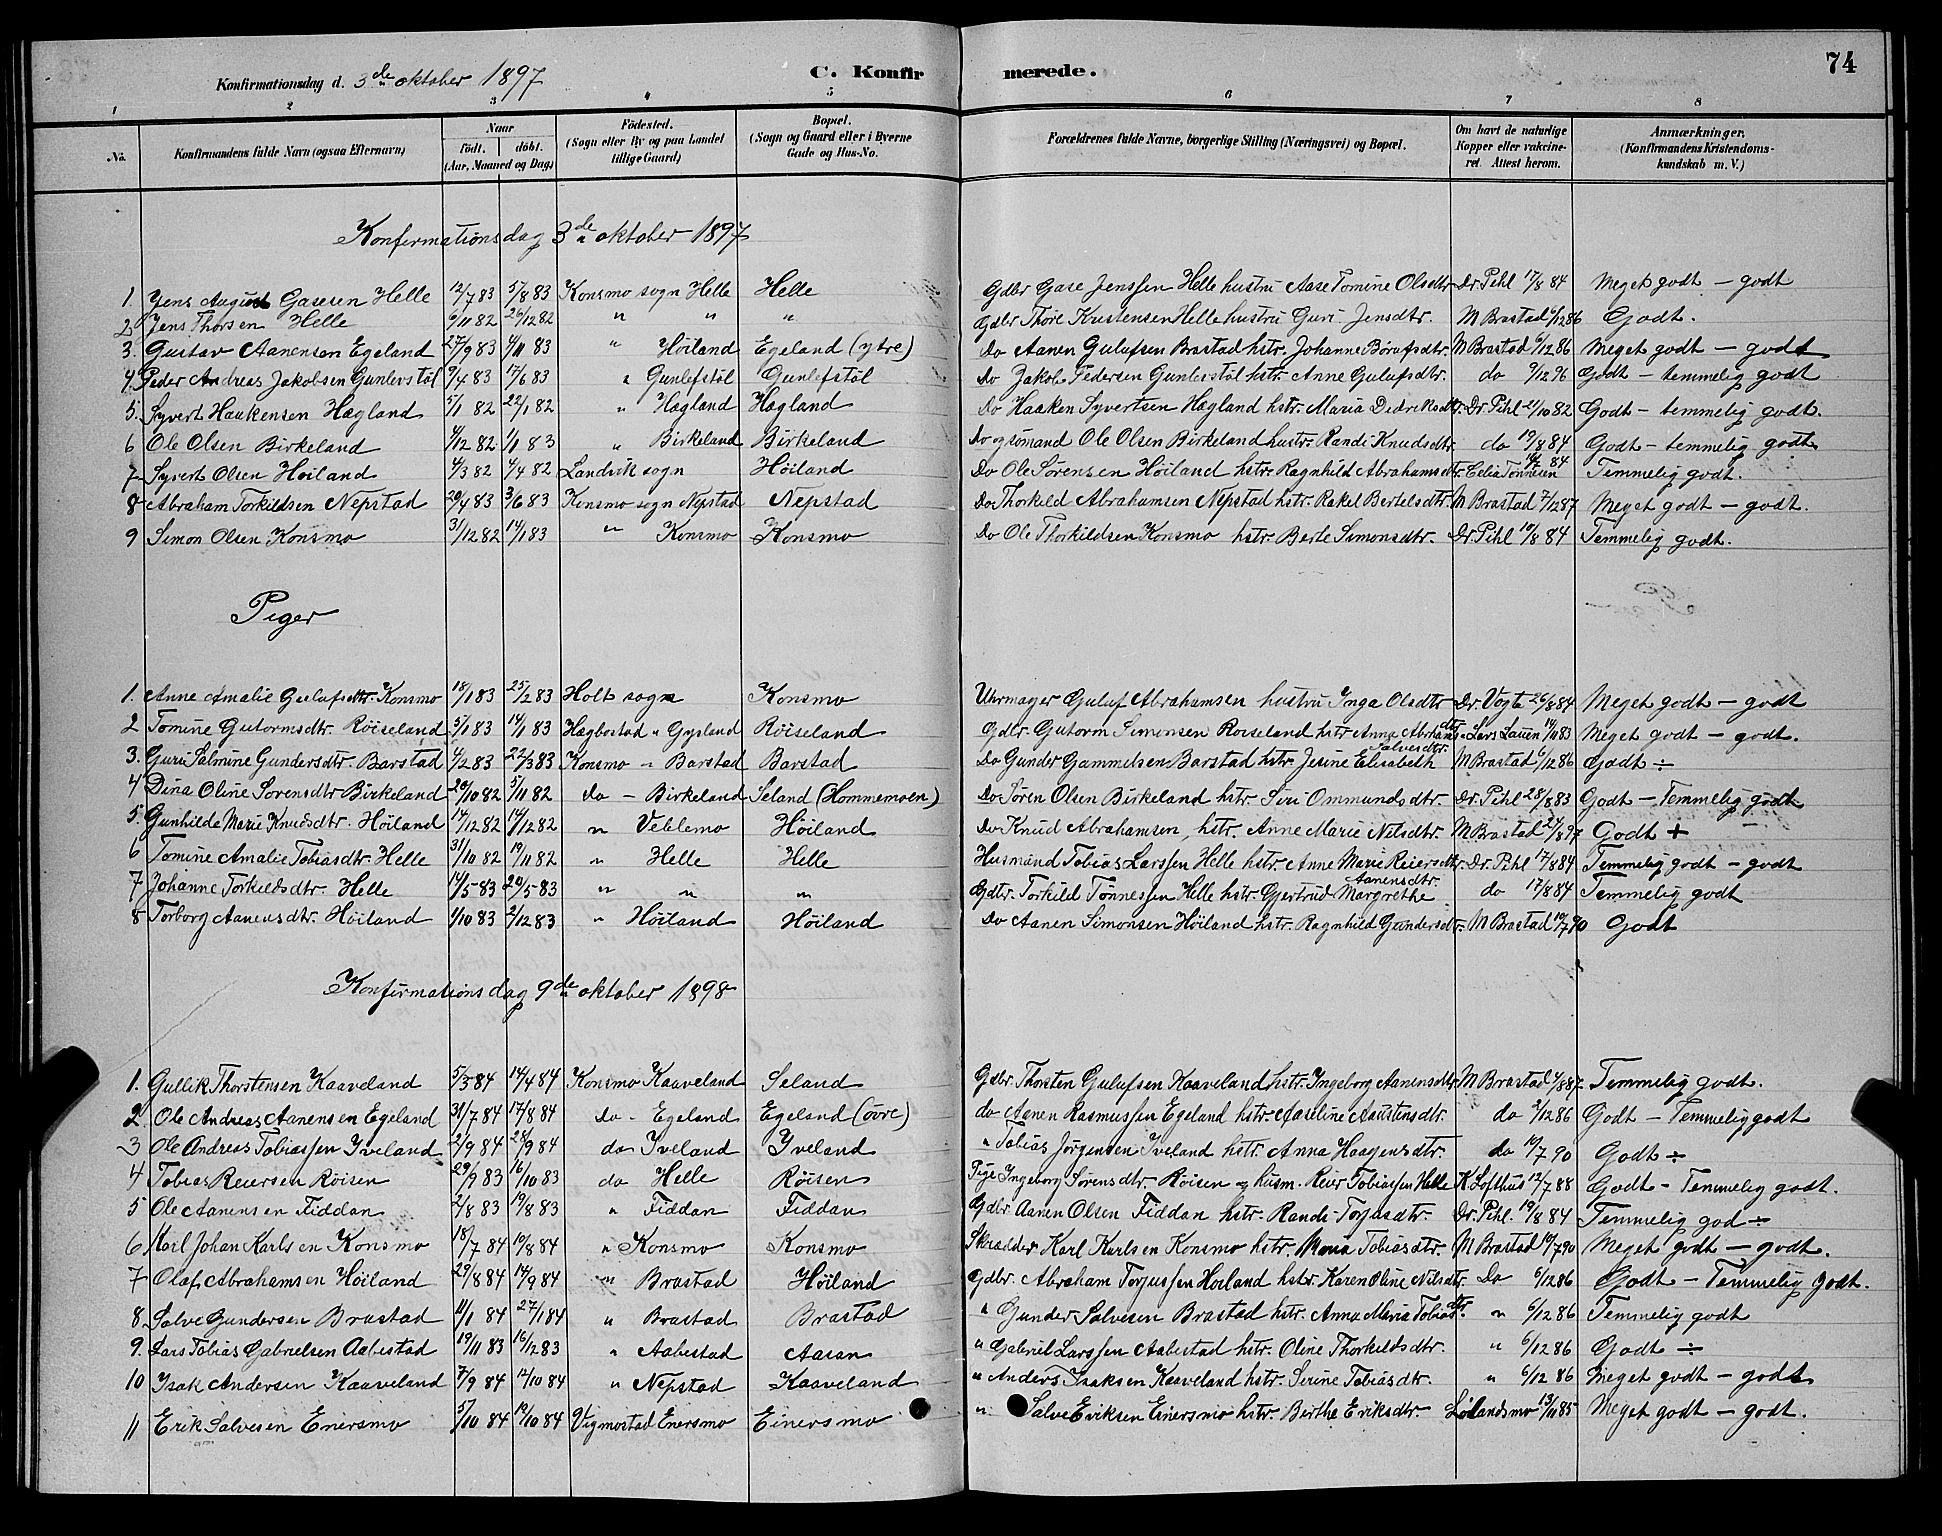 Konfirmationsdag d. 3de oktober 1897 C. Konfirmerede. 74
1 2 3 4 5 6 7 8
No. Konfirmandens fulde Navn (ogsaa Efternavn) Naar födt. döbt. (Aar, Maaned og Dag) Födested. (Sogn eller By og paa Landet tillige Gaard) Bopæl. (Sogn og Gaard eller i Byerne Gade og Hus-No. Forældrenes fulde Navne, borgerlige Stilling (Næringsvei) og Bopæl. Om havt de naturlige Kopper eller vakcineret. Attest herom. Anmærkninger. (Konfirmandens Kristendomskundskab m. V.)
Konfirmationsdag 3de oktober 1897
1. Jens August Gasesen Helle 12/7 83 5/8 83 Konsmo sogn Helle Helle Gdbr Gase Jenssen Helle hustru Aase Tomine Olsdtr Dr Pihl 17/8 84 Meget godt – godt
2. Jens Thorsen Helle 9/11 82 26/12 82 " " " Gdbr Thore Kristensen Helle hustru Guri Jensdtr. M Brastad 6/12 86 Godt.
3. Gustav Aanensen Egeland 27/9 83 4/11 83 " Höiland Egeland (ytre) Do Aanen Gulufsen Brastad hstr. Johanne Börufsdtr. M Brastad 6/12 86 Meget godt – godt
4. Peder Andreas Jakobsen Gunlevstöl 9/4 83 17/6 83 " Gunlefstöl Gunlefstöl Do Jakob Pedersen Gunlevstöl hstr. Anne Gulufsdtr. do 9/12 96 Godt – temmelig godt
5. Syvert Haakensen Hægland 5/1 82 22/1 82 " Hægland Hægland Do Haaken Syvertsen Hægland hstr. Maria Dedreksdtr. Dr. Pihl 21/10 82 Godt – temmelig godt.
6 Ole Olsen Birkeland 4/12 82 1/1 83 " Birkeland Birkeland Do og sömand Ole Olsen Birkeland hustr. Randi Knudsdtr. do 19/8 84 Godt – temmelig godt
7 Syvert Olsen Höiland 4/3 82 4/4 82 Landvik sogn Höiland Do Ole Sörensen Höiland hstr. Ragnhild Abrahamsdtr. Celia Tönnesen 84 Temmelig godt.
8 Abraham Torkildsen Nepstad 20/4 83 3/6 83 Konsmo sogn Nepstad Nepstad Do Thorkild Abrahamsen Nepstad hstr. Rakel Bertelsdtr. M Brastad 7/12 87 Meget godt – godt.
9 Simon Olsen Konsmo 31/12 82 14/1 83 " Konsmo Konsmo Do Ole Thorkildsen Konsmo hstr. Berte Simonsdtr. Dr. Pihl 19/8 84 Temmelig godt.
Piger
1. Anne Amalie Gulufsdtr. Konsmo 18/1 83 25/2 83 Holt sogn Konsmo Uhrmager Guluf Abrahamsen hustru Inga Olsdtr Dr. Vogt 26/8 84 Meget godt – godt
2 Tomine Gutormsdtr. Röiseland 5/1 83 14/1 83 Hægbostad " Gysland Röiseland Gdbr. Gutorm Simonsen Röiseland hstr Anna Abrahamsdtr Lars Lauen 19/11 83 Meget godt – godt.
3. Guri Salmine Gundersdtr. Barstad 4/2 83 22/3 83 Konsmo " Barstad Barstad Do Gunder Gammelsen Barstad hstr. Jesine Elisabeth Salvesdtr. M Brastad 6/12 86 Godt ÷
4 Dina Oline Sörensdtr Birkeland 20/10 82 5/11 82 do – Birkeland Seland (Hommemoen) Do Sören Olsen Birkeland hstr. Siri Ommundsdtr. Dr. Pihl 28/8 83 Godt – Temmelig godt
5. Gunhilde Marie Knudsdtr. Höiland 14/12 82 14/12 82 " Veblemo Höiland Do Knud Abrahamsen hstr. Anne Marie Nilsdtr. M Brastad 27/8 97 Godt +
6 Tomine Amalie Tobiasdtr. Helle 31/10 82 19/11 82 " Helle Helle Husmand Tobias Larssen Helle hstr. Anne Marie Reiersdtr. Dr. Pihl 17/8 84 Temmelig godt – godt
7 Johanne Torkildsdtr. Helle 14/5 83 20/5 83 " " " Gdbr. Torkild Tönnessen Helle hstr. Gjertrud Margrethe Aanensdtr. do 17/8 84 Temmelig godt
8 Torborg Aanensdtr. Höiland 1/10 83 2/12 83 " Höiland Höiland Do Aanen Simonsen Höiland hstr. Ragnhild Gundersdtr. M Brastad 10/7 90 Godt
Konfirmationsdag 9de oktober 1898
1. Gullik Thorstensen Kaaveland 5/3 84 14/4 84 Konsmo Kaaveland Seland Gdbr. Thorsten Gulufsen Kaaveland hstr. Ingeborg Aanensdtr. M Brastad 4/8 87 Temmelig godt.
2. Ole Andreas Aanensen Egeland 31/7 84 17/8 84 do – Egeland Egeland (övre) do Aanen Rasmussen Egeland hstr. Aaseline Austensdtr. do 2/12 86 Godt – Temmelig godt
3 Ole Andreas Tobiassen Yveland 2/9 84 28/9 84 do Yveland Yveland " Tobias Jörgensen Yveland hstr. Anna Haagensdtr. do 10/7 90 Godt ÷
4 Tobias Reiersen Röisen 29/9 83 16/10 83 do Helle Röisen Pige Ingeborg Sörensdtr. Röisen og husm. Reier Tobiassen Helle K Lofthus 12/7 88 Godt – Temmelig godt.
5 Ole Aanensen Fiddan 2/8 83 19/8 83 " Fiddan Fiddan Gdbr. Aanen Olsen Fiddan hstr. Randi Torjusdtr. Dr. Pihl. 19/8 84 Temmelig god ÷
6 Karl Johan Karlsen Konsmo 18/7 84 10/8 84 " Konsmo Konsmo Skrædder Karl Karlsen Konsmo hstr. Mona Tobiasdtr. M Brastad 10/7 90 Meget godt – godt.
7 Olaf Abrahamsen Höiland 29/8 84 14/9 84 " Brastad Höiland Gdbr. Abraham Torjussen Höiland hstr. Karen Oline Nilsdtr. Do 6/12 86 Godt – Temmelig godt.
8 Salve Gundersen Brastad 11/1 84 27/1 84 " Brastad Brastad " Gunder Salvesen Brastad hstr. Anna Maria Tobiasdtr. " 6/12 86 Temmelig godt
9. Lars Tobias Gabrielsen Aabestad 19/11 83 16/12 83 " Aabestad Aasan " Gabriel Larssen Aabestad hstr. Oline Thorkildsdtr. " 6/12 86 Godt ÷
10 Isak Andersen Kaaveland 7/9 84 12/10 84 " Nepstad Kaaveland " Anders Isaksen Kaaveland hstr. Serine Tobiasdtr. " 6/12 86 Meget godt – godt
11 Erik Salvesen Enersmo 5/10 84 19/10 84 Vigmostad Enersmo Einersmo " Salve Eriksen Einersmo hstr. Berthe Eriksdtr. Löilandsmo 13/11 85 Meget godt – godt.